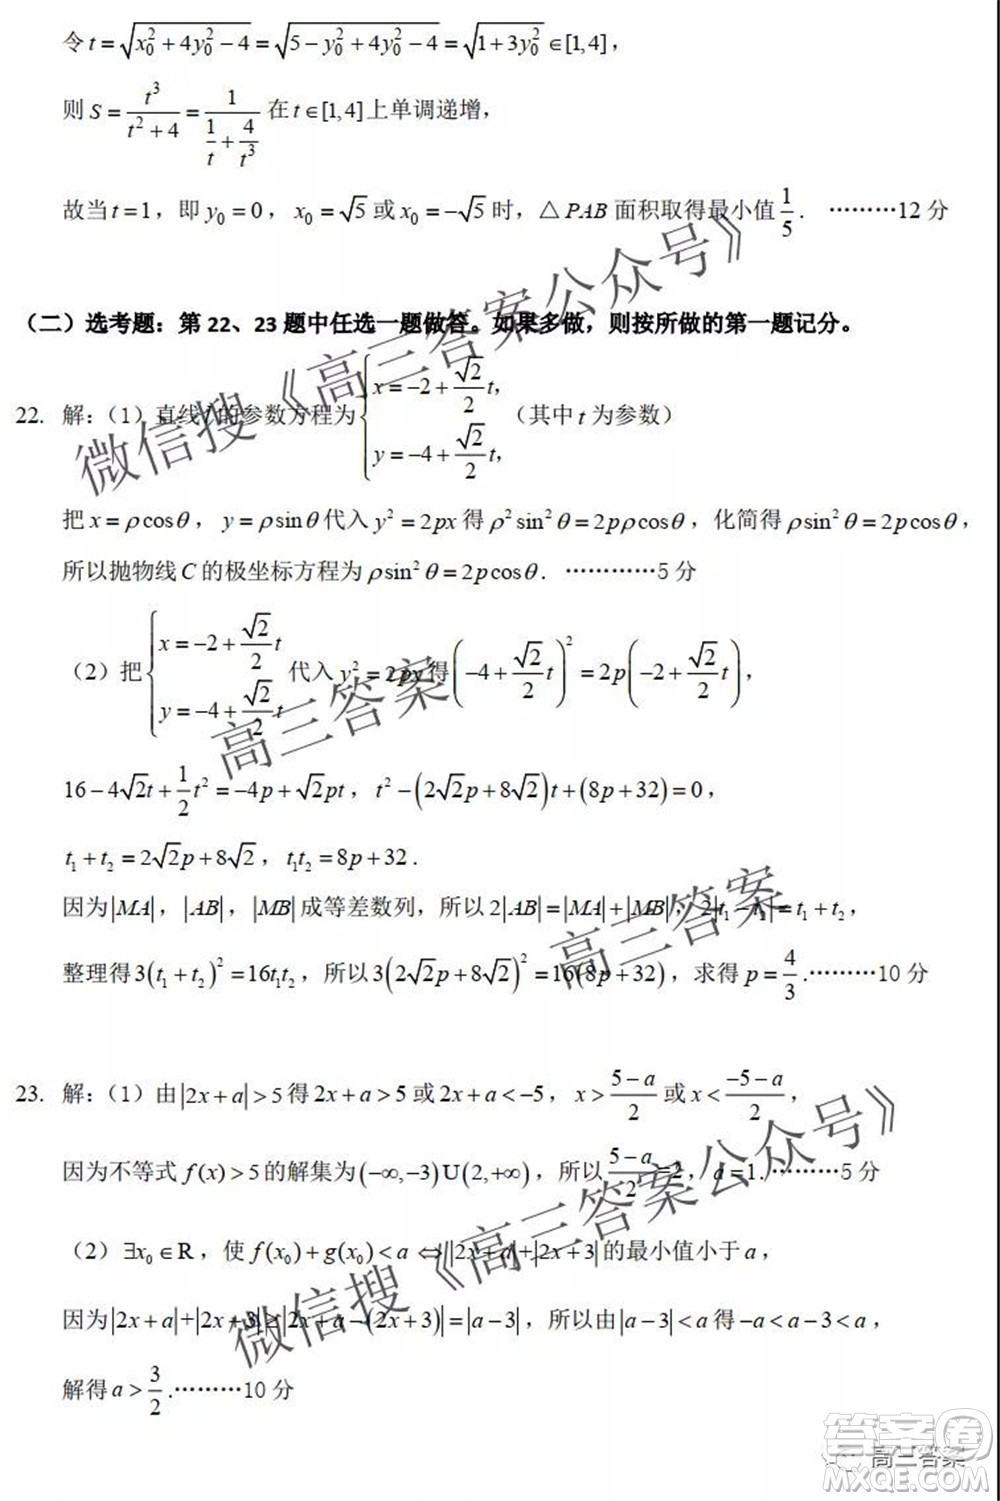 令 t = √(x₀² + 4y₀² − 4) = √(5 − y₀² + 4y₀² − 4) = √(1 + 3y₀²) ∈ [1, 4],
则 S = t³/(t² + 4) = 1/(1/t + 4/t³) 在 t ∈ [1, 4] 上单调递增,
故当 t = 1, 即 y₀ = 0, x₀ = √5 或 x₀ = −√5 时, △PAB 面积取得最小值 1/5. ………12 分
(二)选考题:第 22、23 题中任选一题做答。如果多做,则按所做的第一题记分。
22. 解:(1)直线 l 的参数方程为 { x = −2 + (√2/2)t, y = −4 + (√2/2)t, (其中 t 为参数)
把 x = ρcosθ, y = ρsinθ 代入 y² = 2px 得 ρ²sin²θ = 2pρcosθ, 化简得 ρsin²θ = 2pcosθ,
所以抛物线 C 的极坐标方程为 ρsin²θ = 2pcosθ. …………5 分
(2)把 { x = −2 + (√2/2)t y = −4 + (√2/2)t 代入 y² = 2px 得 (−4 + (√2/2)t)² = 2p(−2 + (√2/2)t),
16 − 4√2t + (1/2)t² = −4p + √2pt, t² − (2√2p + 8√2)t + (8p + 32) = 0,
t₁ + t₂ = 2√2p + 8√2, t₁t₂ = 8p + 32.
因为 |MA|, |AB|, |MB| 成等差数列, 所以 2|AB| = |MA| + |MB|, 2|t₁ − t₂| = t₁ + t₂,
整理得 3(t₁ + t₂)² = 16t₁t₂, 所以 3(2√2p + 8√2)² = 16(8p + 32), 求得 p = 4/3. ………10 分
23. 解:(1)由 |2x + a| > 5 得 2x + a > 5 或 2x + a < −5, x > (5 − a)/2 或 x < (−5 − a)/2,
因为不等式 f(x) > 5 的解集为 (−∞, −3) U (2, +∞), 所以 (5 − a)/2 = 2, a = 1. ………5 分
(2)∃x₀ ∈ R, 使 f(x₀) + g(x₀) < a ⇔ |2x + a| + |2x + 3| 的最小值小于 a,
因为 |2x + a| + |2x + 3| ≥ |2x + a − (2x + 3)| = |a − 3|, 所以由 |a − 3| < a 得 −a < a − 3 < a,
解得 a > 3/2. ………10 分
微信搜《高三答案公众号》
高三答案
高三答案
微信搜《高三答案公众号》
高三答案
答案圈
MXQE.COM